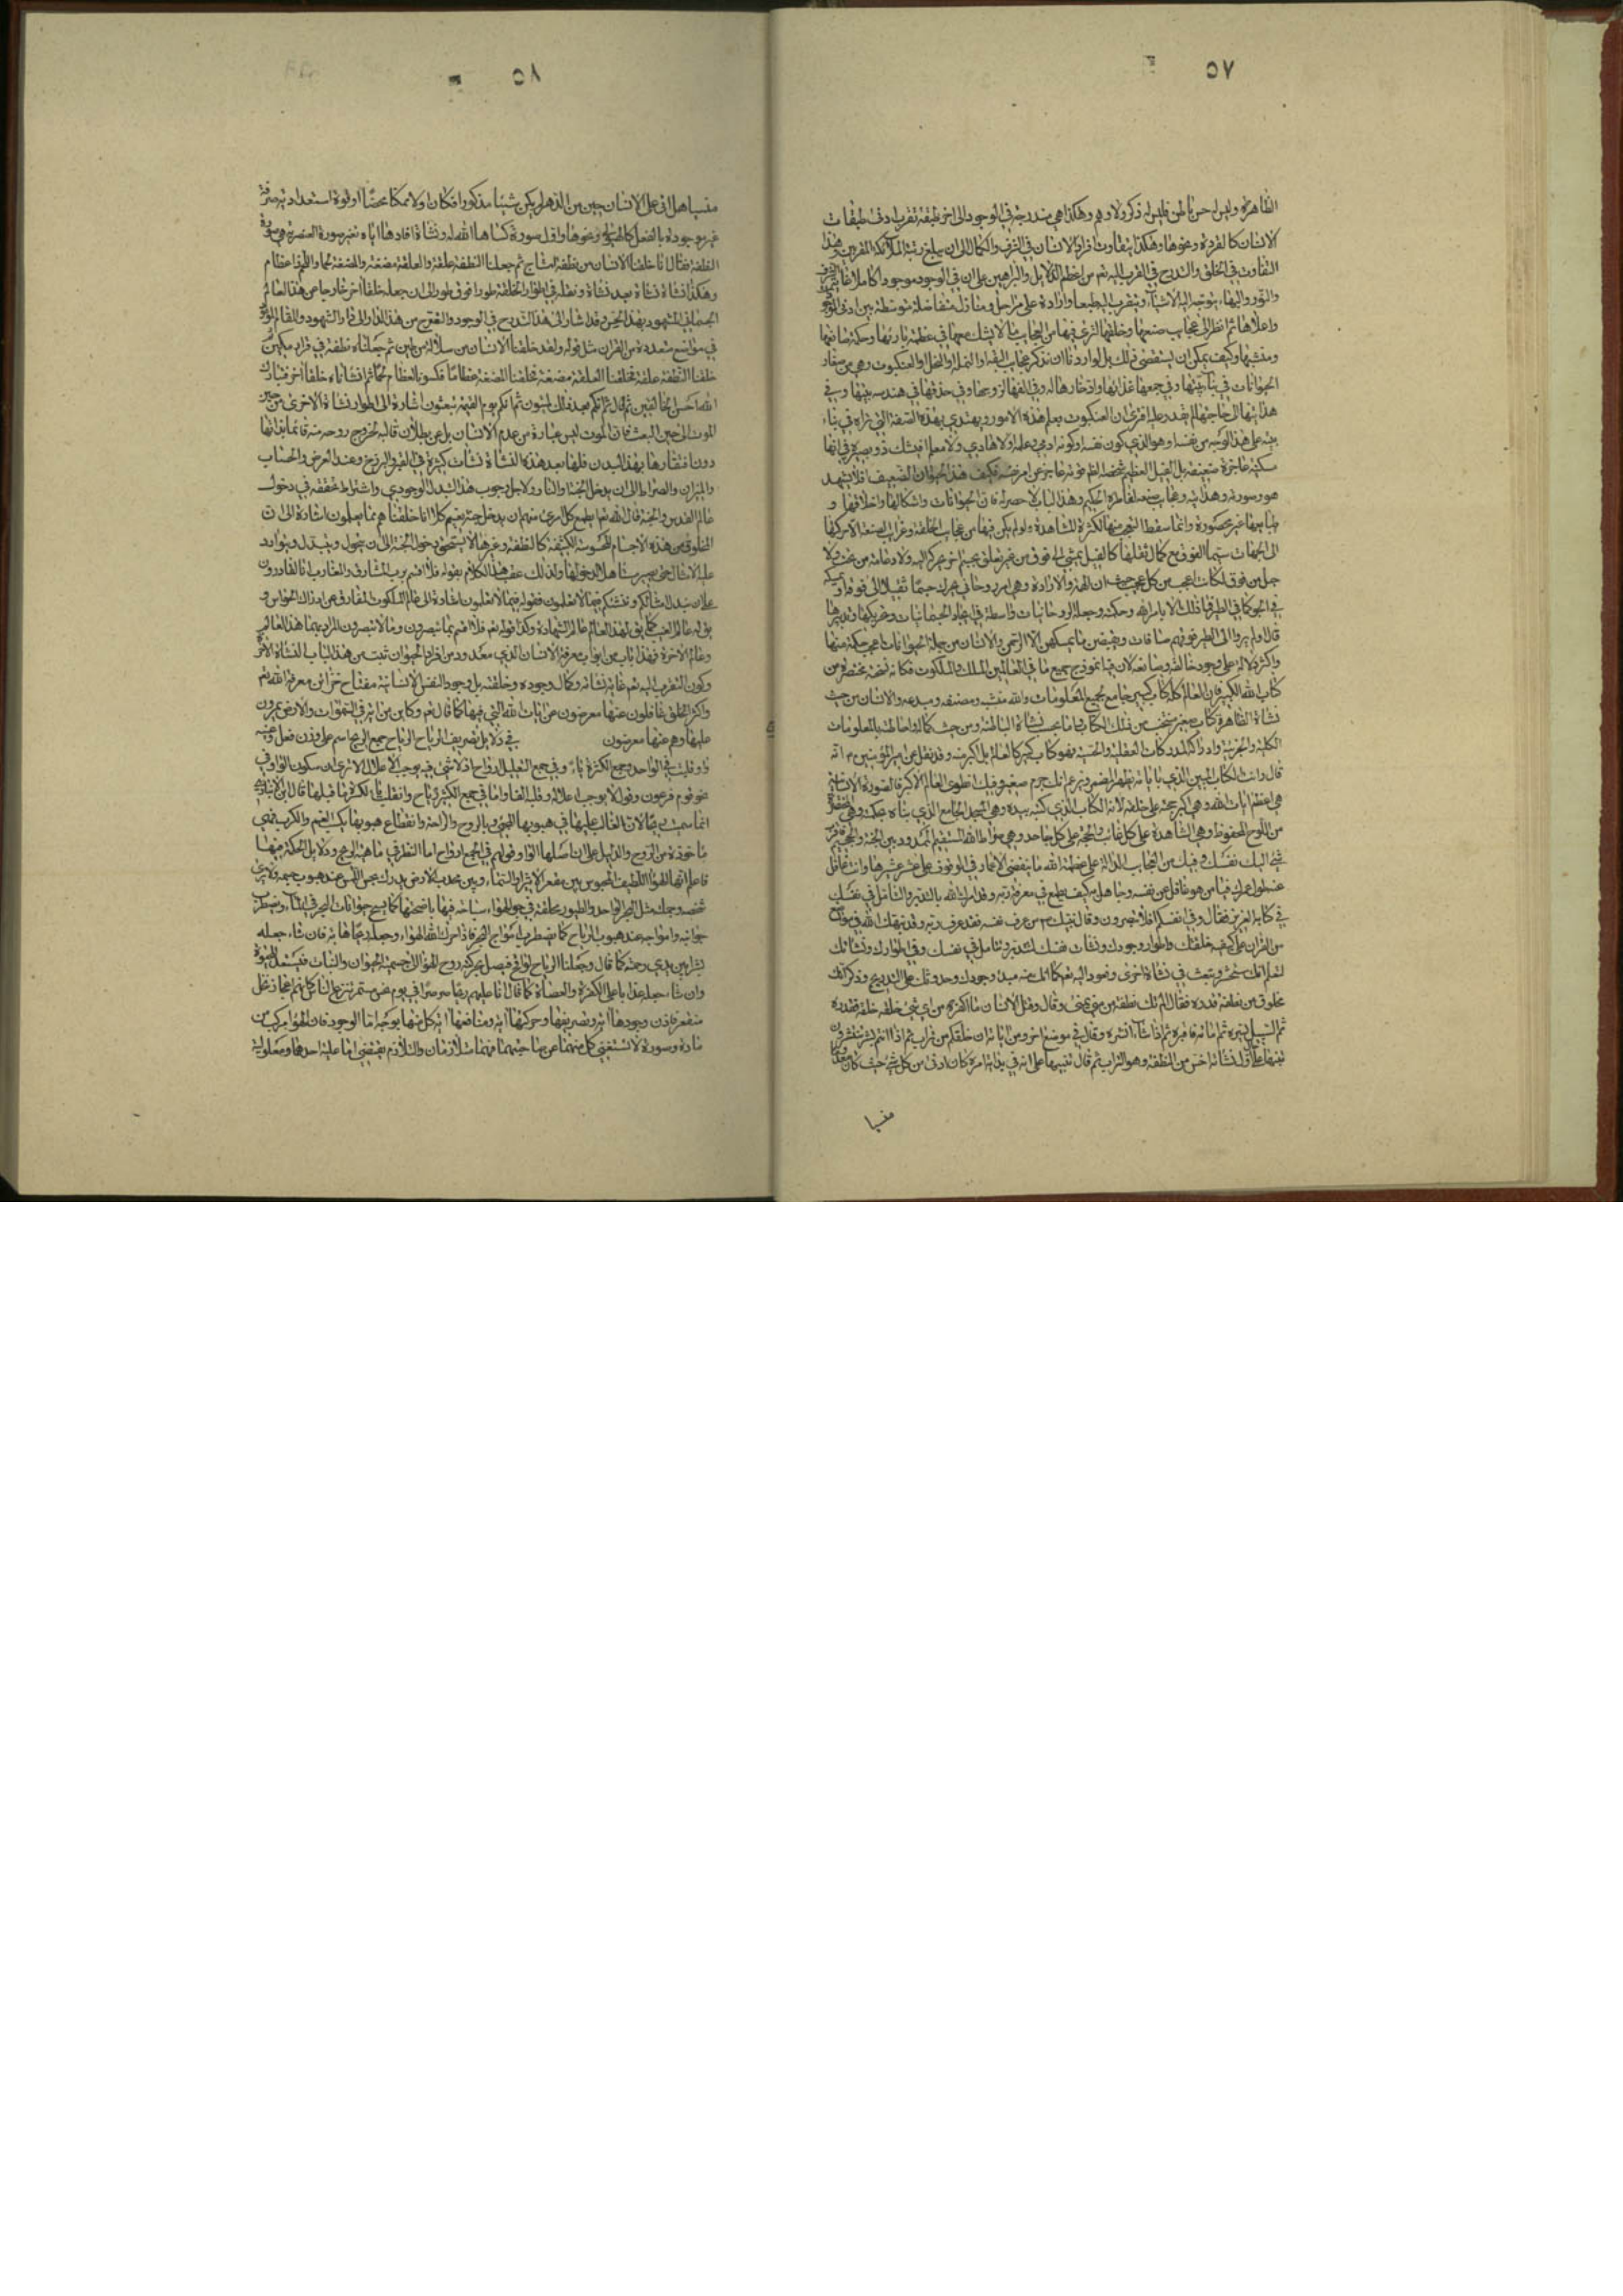 ٥٧
الظاهرة وليس له حس باطن فليس له ذكر ولا وهم وهكذا هي متدرجة في الوجود الى اخر طبقة تقرب ادنى طبقات
الانسان كالقردة ونحوها وهكذا يتفاوت افراد الانسان في الشرف والكمال الى ان يبلغ رتبة الملائكة المقربين وهذا
التفاوت في الخلق والتدرج في القرب اليه تعم من اعظم الدلايل والبراهين على ان في الوجود موجودا كاملا
والنور والبهاء يتوجه اليه الاشياء ويتقرب اليه طبعا وارادة على مراحل ومنازل متفاضلة متوسطة بين ادنى
واعلاها ثم انظر الى عجايب صنعها وخلقها لترى فيها من العجايب ما لا يشك معها في عظمة بارئها وحكمة صانعها
ومنشيها وكيف يمكن ان يستقصى ذلك بل لو اردنا ان نذكر عجايب البقة او النملة او النحل او العنكبوت وهي من صغار
الحيوانات في بنائها بيتها وفي جمعها غذائها وادخارها له وفي الفها لزوجها وفي حذقها في هندسة بيتها وفي
هدايتها الى حاجتها لم نقدر عليه افترى ان العنكبوت يعلم هذه الامور ويهتدي بهذه الصنعة التي تراه في بناء
بيته على هذا الوجه من نفسه او هو الذي كون نفسه او كونه ادمي وعلمه او لا هادي ولا معلم له افيشك ذو بصيرة في انها
مسكينة عاجزة ضعيفة بل الفيل العظيم شخصه الظاهر قوته عاجز عن امر نفسه فكيف هذا الحيوان الضعيف افلا يشهد
هو وصورته وهدايته وعجايب صنعه لفاطره الحكيم وهذا الباب لا حصر له فان الحيوانات واشكالها واخلاقها و
طباعها غير محصورة وانما سقط التعجب منها لكثرة المشاهدة ولو لم يكن فيها من عجايب الخلقة وغرايب الصنعة الا حركتها
الى الجهات سيما الفوق مع كمال ثقلها كالفيل يمشي الى فوق من غير تعلق بجسم اخر يحركه اليه ولا دعامة من تحت ولا
حبل من فوق لكان اعجب من كل عجيب ان الهمة والارادة وهي امر روحاني يحرك جسما ثقيلا الى فوق او يمسكه
في الجو كما في الطير فما ذلك الا بامر الله وحكمته وجعله الروحانيات واسطة في ايجاد الجسمانيات وتحريكها وتدبيرها
قال اولم يروا الى الطير فوقهم صافات ويقبضن ما يمسكهن الا الرحمن والانسان من جملة الحيوانات اعجب حكمة منها
واكثر دلالة على وجود خالقه وصانعه لان فيه انموذج جميع ما في العالمين الملك والملكوت فكانه نسخة مختصرة من
كتاب الله الكبير فان العالم كله كتاب كبير جامع لجميع المعلومات والله منشيه ومصنفه ومبدعه والانسان من حيث
نشاته الظاهرة كتاب صغير منتخب من ذلك الكتاب واما بحسب نشاته الباطنة ومن حيث كمالية احاطته بالمعلومات
الكلية والجزئية وادراكه المدركات العقلية والحسية فهو كتاب كبير كالعالم بل اكبر منه وقد نقل عن امير المؤمنين ع انه
قال وانت الكتاب المبين الذي باياته يظهر المضمر وتزعم انك جرم صغير وفيك انطوى العالم الاكبر فالصورة الانسانية
هي اعظم ايات الله وهي اكبر حجة على خلقه لانه الكتاب الذي كتبه بيده وهي الهيكل الجامع الذي بناه بحكمته وهي
من اللوح المحفوظ وهي الشاهدة على كل غايب والحجة على كل جاحد وهي صراط الله المستقيم الممدود بين الجنة والجحيم
شيء اليك نفسك وفيك من العجايب الدالة على عظمة الله ما ينقضي الاعمار في الوقوف على عشر عشيرها وانت غافل
عنه طول عمرك فيا من هو غافل عن نفسه وجاهل به كيف تطمع في معرفة ربه وقد امرك الله بالتدبر والتامل في نفسك
في كتابه العزيز فقال وفي انفسكم افلا تبصرون وقال نبيك ص من عرف نفسه فقد عرف ربه وقد نبهك الله في مواضع
من القران على كيفية خلقتك واطوار وجودك ونشات نفسك لتتدبر وتتامل في نفسك وفي اطوارك ونشاتك
لتعلم انك ستحشر وتبعث في نشاة اخرى وتعود اليه تعم كما انك منه مبدء وجودك وحدوثك على التدريج وذكر انك
مخلوق من نطفة قذرة فقال الم تك نطفة من مني يمنى وقال وقتل الانسان ما اكفره من اي شيء خلقه خلقه فقدره
ثم السبيل يسره ثم اماته فاقبره ثم اذا شاء انشره وقال في موضع اخر ومن اياته ان خلقكم من تراب ثم اذا انتم بشر تنتشرون
تنبيها على اول نشاته اخس من النطفة وهو التراب ثم قال تنبيها على انه في بداية امره كان ادنى من كل شيء حيث كان
منسيا
٥٨
منسيا هل اتى على الانسان حين من الدهر لم يكن شيئا مذكورا فكان اولا ممكنا محضا او قوة استعدادية
غير موجودة بالفعل كالهيولى ونحوها واول صورة كساها الله له ونشاة افادها اياه تغير صورة العنصرية هي صورة
النطفة فقال انا خلقنا الانسان من نطفة امشاج ثم جعلنا النطفة علقة والعلقة مضغة والمضغة لحما واللحم عظام
وهكذا انشاه نشاة بعد نشاة ونقله في اطوار الخلقة طورا فوق طور الى ان جعله خلقا اخر خارجا عن هذا العالم
الجسماني المشهود بهذا الحس وقد اشار الى هذا التدريج في الوجود والتخرج من هذه الدار الى دار الشهود والمقام
في مواضع متعددة من القران مثل قوله ولقد خلقنا الانسان من سلالة من طين ثم جعلناه نطفة في قرار مكين
خلقنا النطفة علقة فخلقنا العلقة مضغة فخلقنا المضغة عظاما فكسونا العظام لحما ثم انشاناه خلقا اخر فتبارك
الله احسن الخالقين ثم قال ثم انكم بعد ذلك لميتون ثم انكم يوم القيمة تبعثون اشارة الى اطوار نشاة الاخرى من حين
الموت الى حين البعث فان الموت ليس عبارة من عدم الانسان بل عن بطلان قالبه لخروج روحه منه قائما بذاتها
دون افتقارها بهذا البدن فلها بعد هذه النشاة نشات كثيرة في القبر والبرزخ وعند العرض والحساب
والميزان والصراط الى ان يدخل الجنة او النار ولاجل وجوب هذا التبدل الوجودي واشتراط تحققه في دخول
عالم القدس والجنة قال الله تعا ايطمع كل امرئ منهم ان يدخل جنة نعيم كلا انا خلقناهم مما يعلمون اشارة الى ان
المخلوق من هذه الاجسام المحسوسة الكثيفة كالنطفة وغيرها لا يستحق دخول الجنة الى ان يتحول ويتبدل ويتوارد
عليه الامثال حتى يصير متاهلا لدخولها ولذلك عقب هذا الكلام بقوله فلا اقسم برب المشارق والمغارب انا لقادرون
على ان نبدل امثالكم وننشئكم فيما لا تعلمون فقوله فيما لا تعلمون اشارة الى عالم الملكوت المفارق عن ادراك الحواس و
يق له عالم الغيب كما يق لهذا العالم عالم الشهادة وكذا قوله تعم فلا اقسم بما تبصرون وما لا تبصرون المراد بهما هذا العالم
وعالم الاخرة فهذا باب من ابواب معرفة الانسان الذي معدود من افراد الحيوان ثبت من هذا الباب النشاة
وكون التقرب اليه تعم غاية نشاته وكمال وجوده وخلقته بل وجود النفس الانسانية مفتاح خزائن معرفة الله تعم
واكثر الخلق غافلون عنها معرضون عن ايات الله التي فيها كما قال تعم وكاين من اية في السموات والارض يمرون
عليها وهم عنها معرضون في دلايل تصريف الرياح الرياح جمع الريح اسم على وزن فعل وعينه
واو قلبت في الواحد وجمع الكثرة ياء وفي جمع القليل ارواح اذ لا شيء فيه يوجب الاعلال الا ترى ان سكون الواو في
نحو قوم فرعون وقول لا يوجب اعلاله وقلبه الفا واما في جمع الكثير رياح وانقلبت ياء لكسرة ما قبلها قال ابن الانباري
انما سميت ريحا لان الغالب عليها في هبوبها المجيء بالروح والراحة وانقطاع هبوبها يكسب الغم والكرب فهي
ماخوذة من الروح والدليل على ان اصلها الواو قولهم في الجمع ارواح اما النظر في ماهية الريح ودلايل الحكمة فيها
فاعلم انها الهواء اللطيف المحبوس بين مقعر الاثير والسماء وبين محدب الارض يدرك بحس اللمس عند هبوب جسمه ولا يرى
شخصه وجملته مثل البحر الواحد والطيور محلقة في جو الهواء سباحة فيها باجنحتها كما يسبح حيوانات البحر في الماء ويضطرب
جوانبه وامواجه عند هبوب الرياح كما تضطرب امواج البحر فاذا حرك الله الهواء وجعله ريحا هابة فان شاء جعله
بشرا بين يدي رحمته كما قال وجعلنا الرياح لواقح فيصل بحركته روح الهواء الى جسمة الحيوان والنبات فيستعد للنمو
وان شاء جعله عذابا على الكفرة والعصاة كما قال انا ارسلنا عليهم ريحا صرصرا في يوم نحس مستمر تنزع الناس كانهم اعجاز نخل
منقعر فاذن وجودها اية وتصريفها وحركتها اية ومنافعها اية كل منها بوجه اما الوجود فان الهواء مركب من
مادة وصورة لا تستغني كل منهما عن صاحبتهما فهما متلازمان والتلازم يقتضي اما علية احدهما ومعلولية